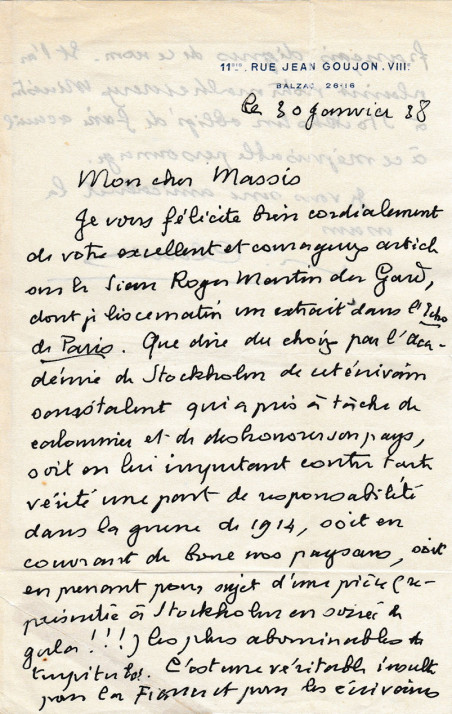 11BIS, RUE JEAN GOUJON. VIIIE
BALZAC 26-16
le 30 janvier 38
Mon cher Massis
Je vous félicite bien cordialement
de votre excellent et courageux article
sur le Sieur Roger Martin du Gard,
dont je lis ce matin un extrait dans l'Echo
de Paris. Que dire du choix par l'Aca-
démie de Stockholm de cet écrivain
sans talent qui a pris à tâche de
calomnier et de deshonorer son pays,
soit en lui imputant contre toute
vérité une part de responsabilité
dans la guerre de 1914, soit en
couvrant de boue nos paysans, soit
en prenant pour sujet d'une pièce (re-
présentée à Stockholm en soirée de
gala !!!) les plus abominables
turpitudes. C'est une véritable insulte
pour la France et pour les écrivains